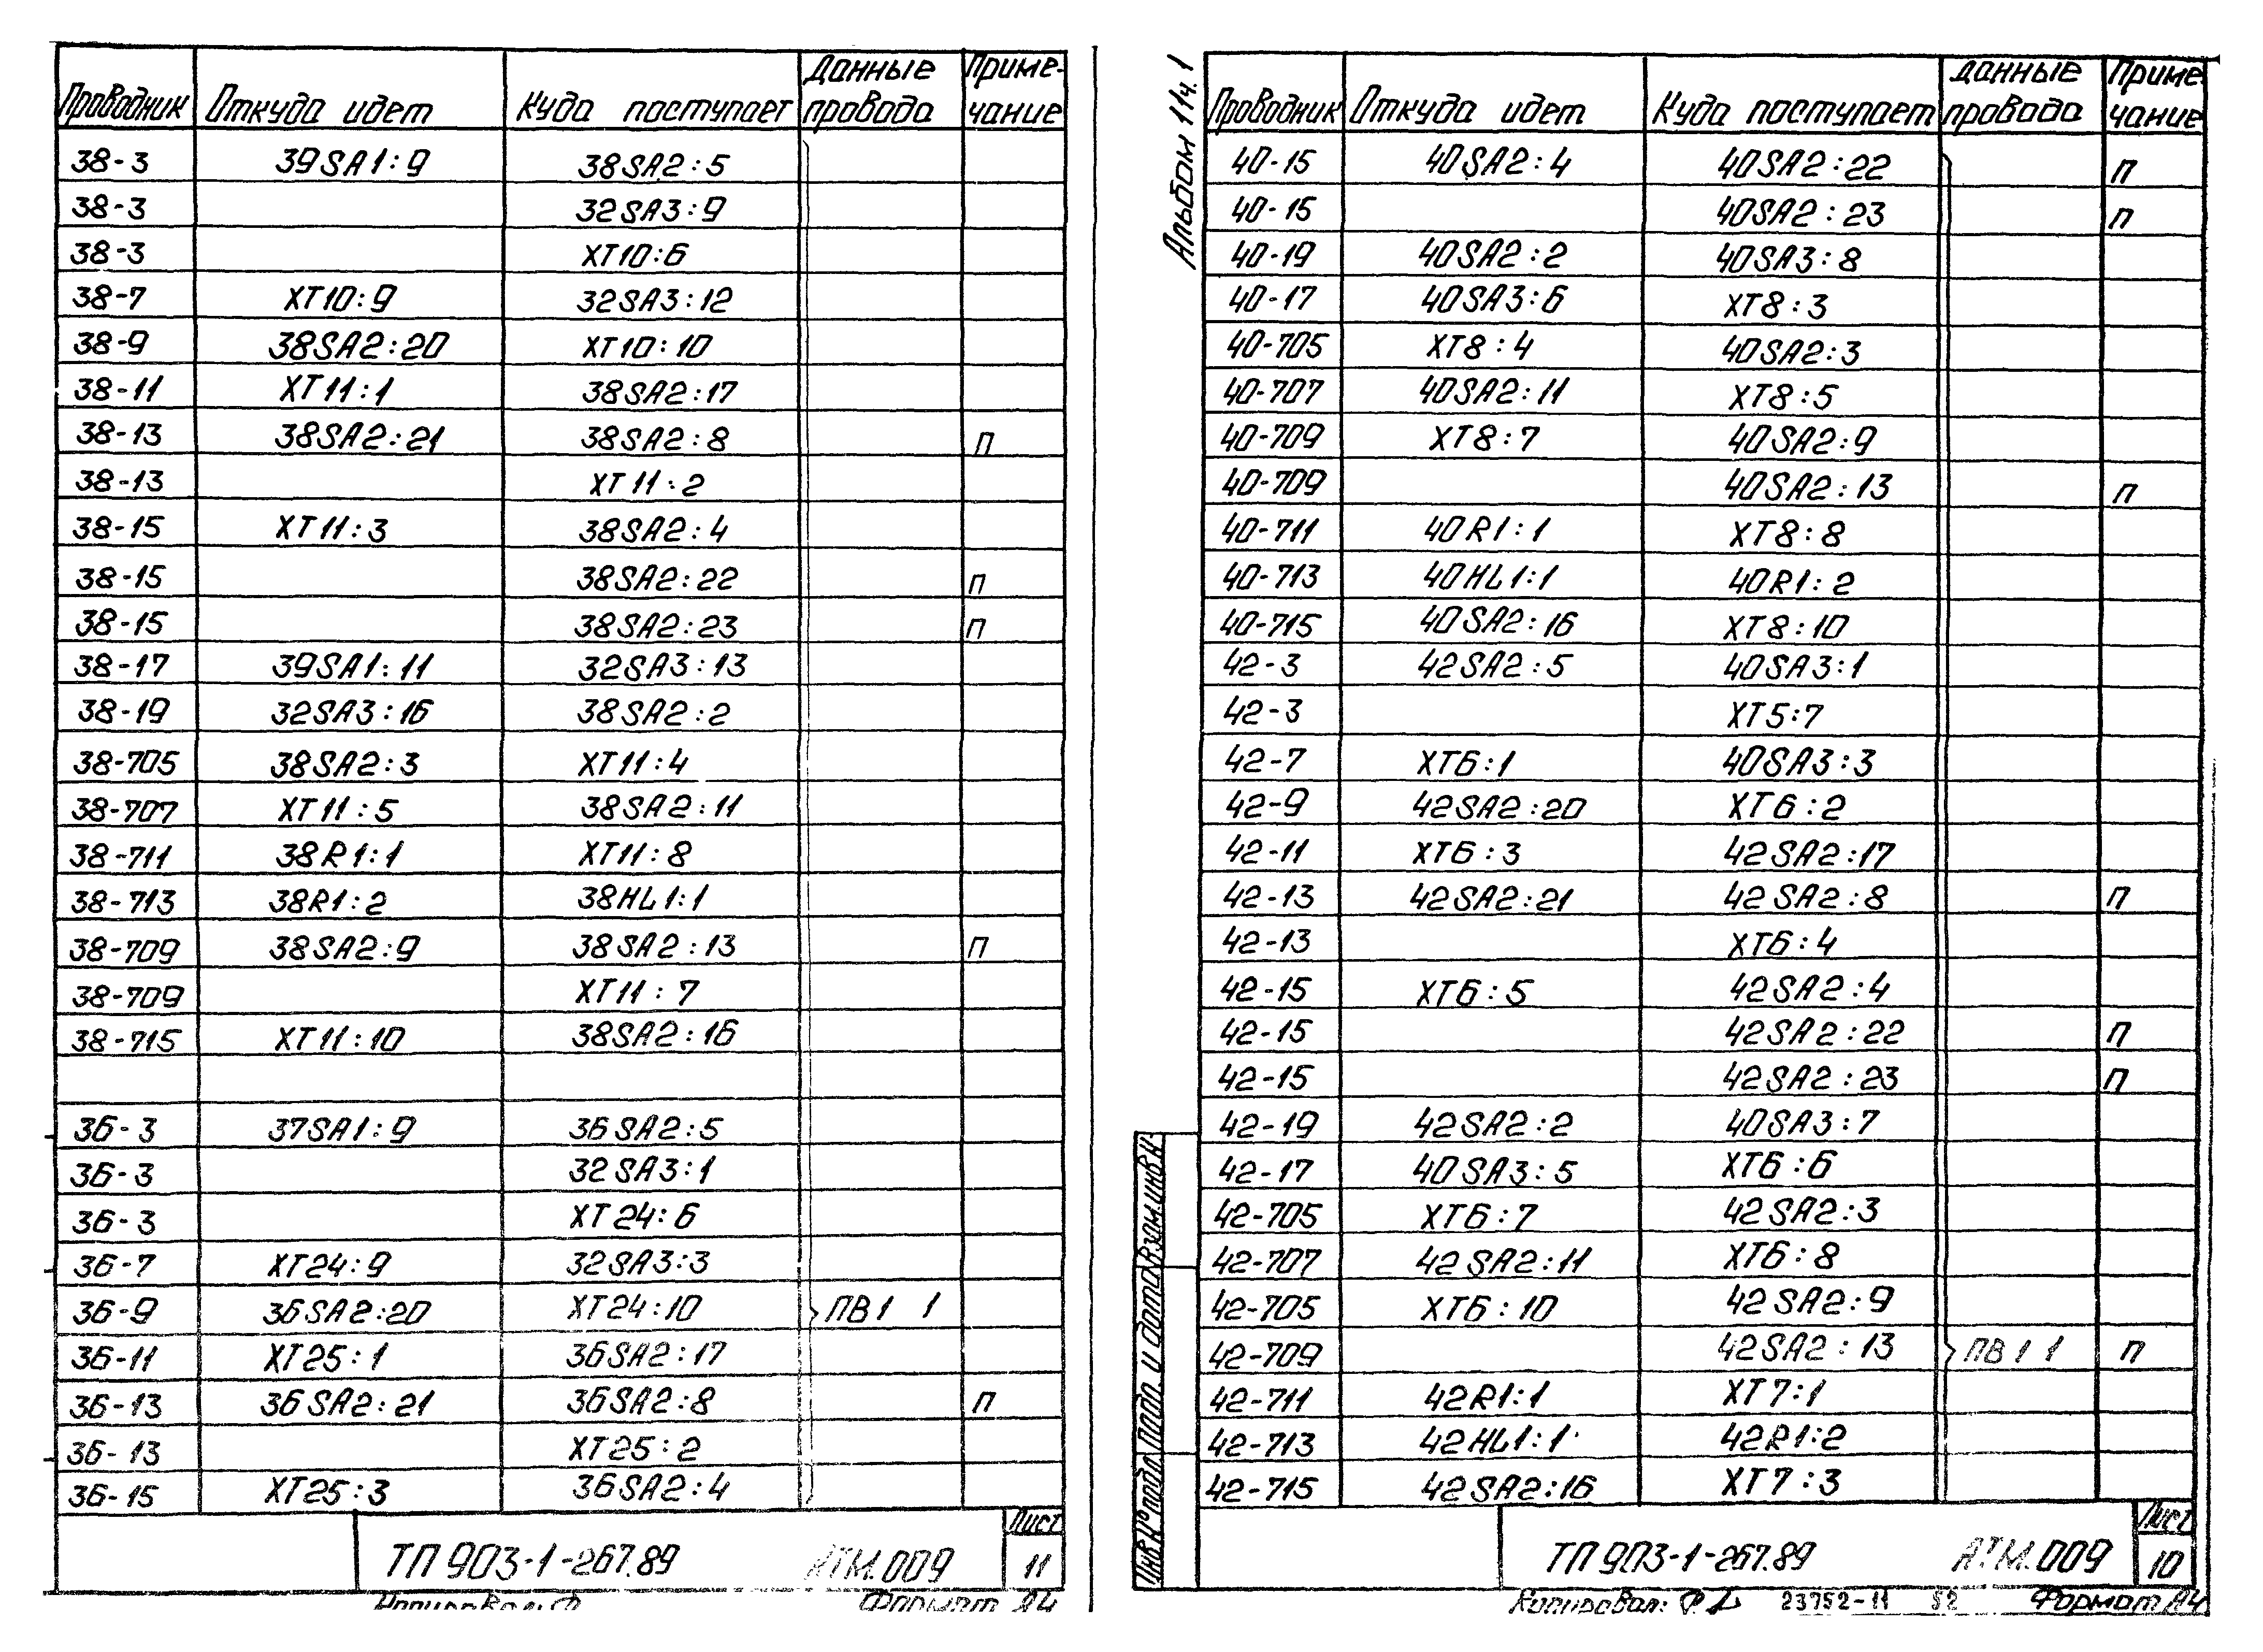 Проводник Откуда идет Куда поступает Данные провода Приме-чание
38-3 39SA1:9 38SA2:5
38-3 32SA3:9
38-3 XT10:6
38-7 XT10:9 32SA3:12
38-9 38SA2:20 XT10:10
38-11 XT11:1 38SA2:17
38-13 38SA2:21 38SA2:8 п
38-13 XT11:2
38-15 XT11:3 38SA2:4
38-15 38SA2:22 п
38-15 38SA2:23 п
38-17 39SA1:11 32SA3:13
38-19 32SA3:16 38SA2:2
38-705 38SA2:3 XT11:4
38-707 XT11:5 38SA2:11
38-711 38R1:1 XT11:8
38-713 38R1:2 38HL1:1
38-709 38SA2:9 38SA2:13 п
38-709 XT11:7
38-715 XT11:10 38SA2:16
36-3 37SA1:9 36SA2:5
36-3 32SA3:1
36-3 XT24:6
36-7 XT24:9 32SA3:3
36-9 36SA2:20 XT24:10 ПВ1 1
36-11 XT25:1 36SA2:17
36-13 36SA2:21 36SA2:8 п
36-13 XT25:2
36-15 XT25:3 36SA2:4
ТП 903-1-267.89 АТМ.009 Лист 11
Копировал: Формат А4
Альбом 11 ч.1
Проводник Откуда идет Куда поступает Данные провода Приме чание
40-15 40SA2:4 40SA2:22 п
40-15 40SA2:23 п
40-19 40SA2:2 40SA3:8
40-17 40SA3:6 XT8:3
40-705 XT8:4 40SA2:3
40-707 40SA2:11 XT8:5
40-709 XT8:7 40SA2:9
40-709 40SA2:13 п
40-711 40R1:1 XT8:8
40-713 40HL1:1 40R1:2
40-715 40SA2:16 XT8:10
42-3 42SA2:5 40SA3:1
42-3 XT5:7
42-7 XT6:1 40SA3:3
42-9 42SA2:20 XT6:2
42-11 XT6:3 42SA2:17
42-13 42SA2:21 42SA2:8 п
42-13 XT6:4
42-15 XT6:5 42SA2:4
42-15 42SA2:22 п
42-15 42SA2:23 п
42-19 42SA2:2 40SA3:7
42-17 40SA3:5 XT6:6
42-705 XT6:7 42SA2:3
42-707 42SA2:11 XT6:8
42-705 XT6:10 42SA2:9
42-709 42SA2:13 ПВ1 1 п
42-711 42R1:1 XT7:1
42-713 42HL1:1 42R1:2
42-715 42SA2:16 XT7:3
Инв.№ подл. Подп. и дата Взам.инв.№
ТП 903-1-267.89 АТМ.009 Лист 10
Копировал: 23752-11 52 Формат А4